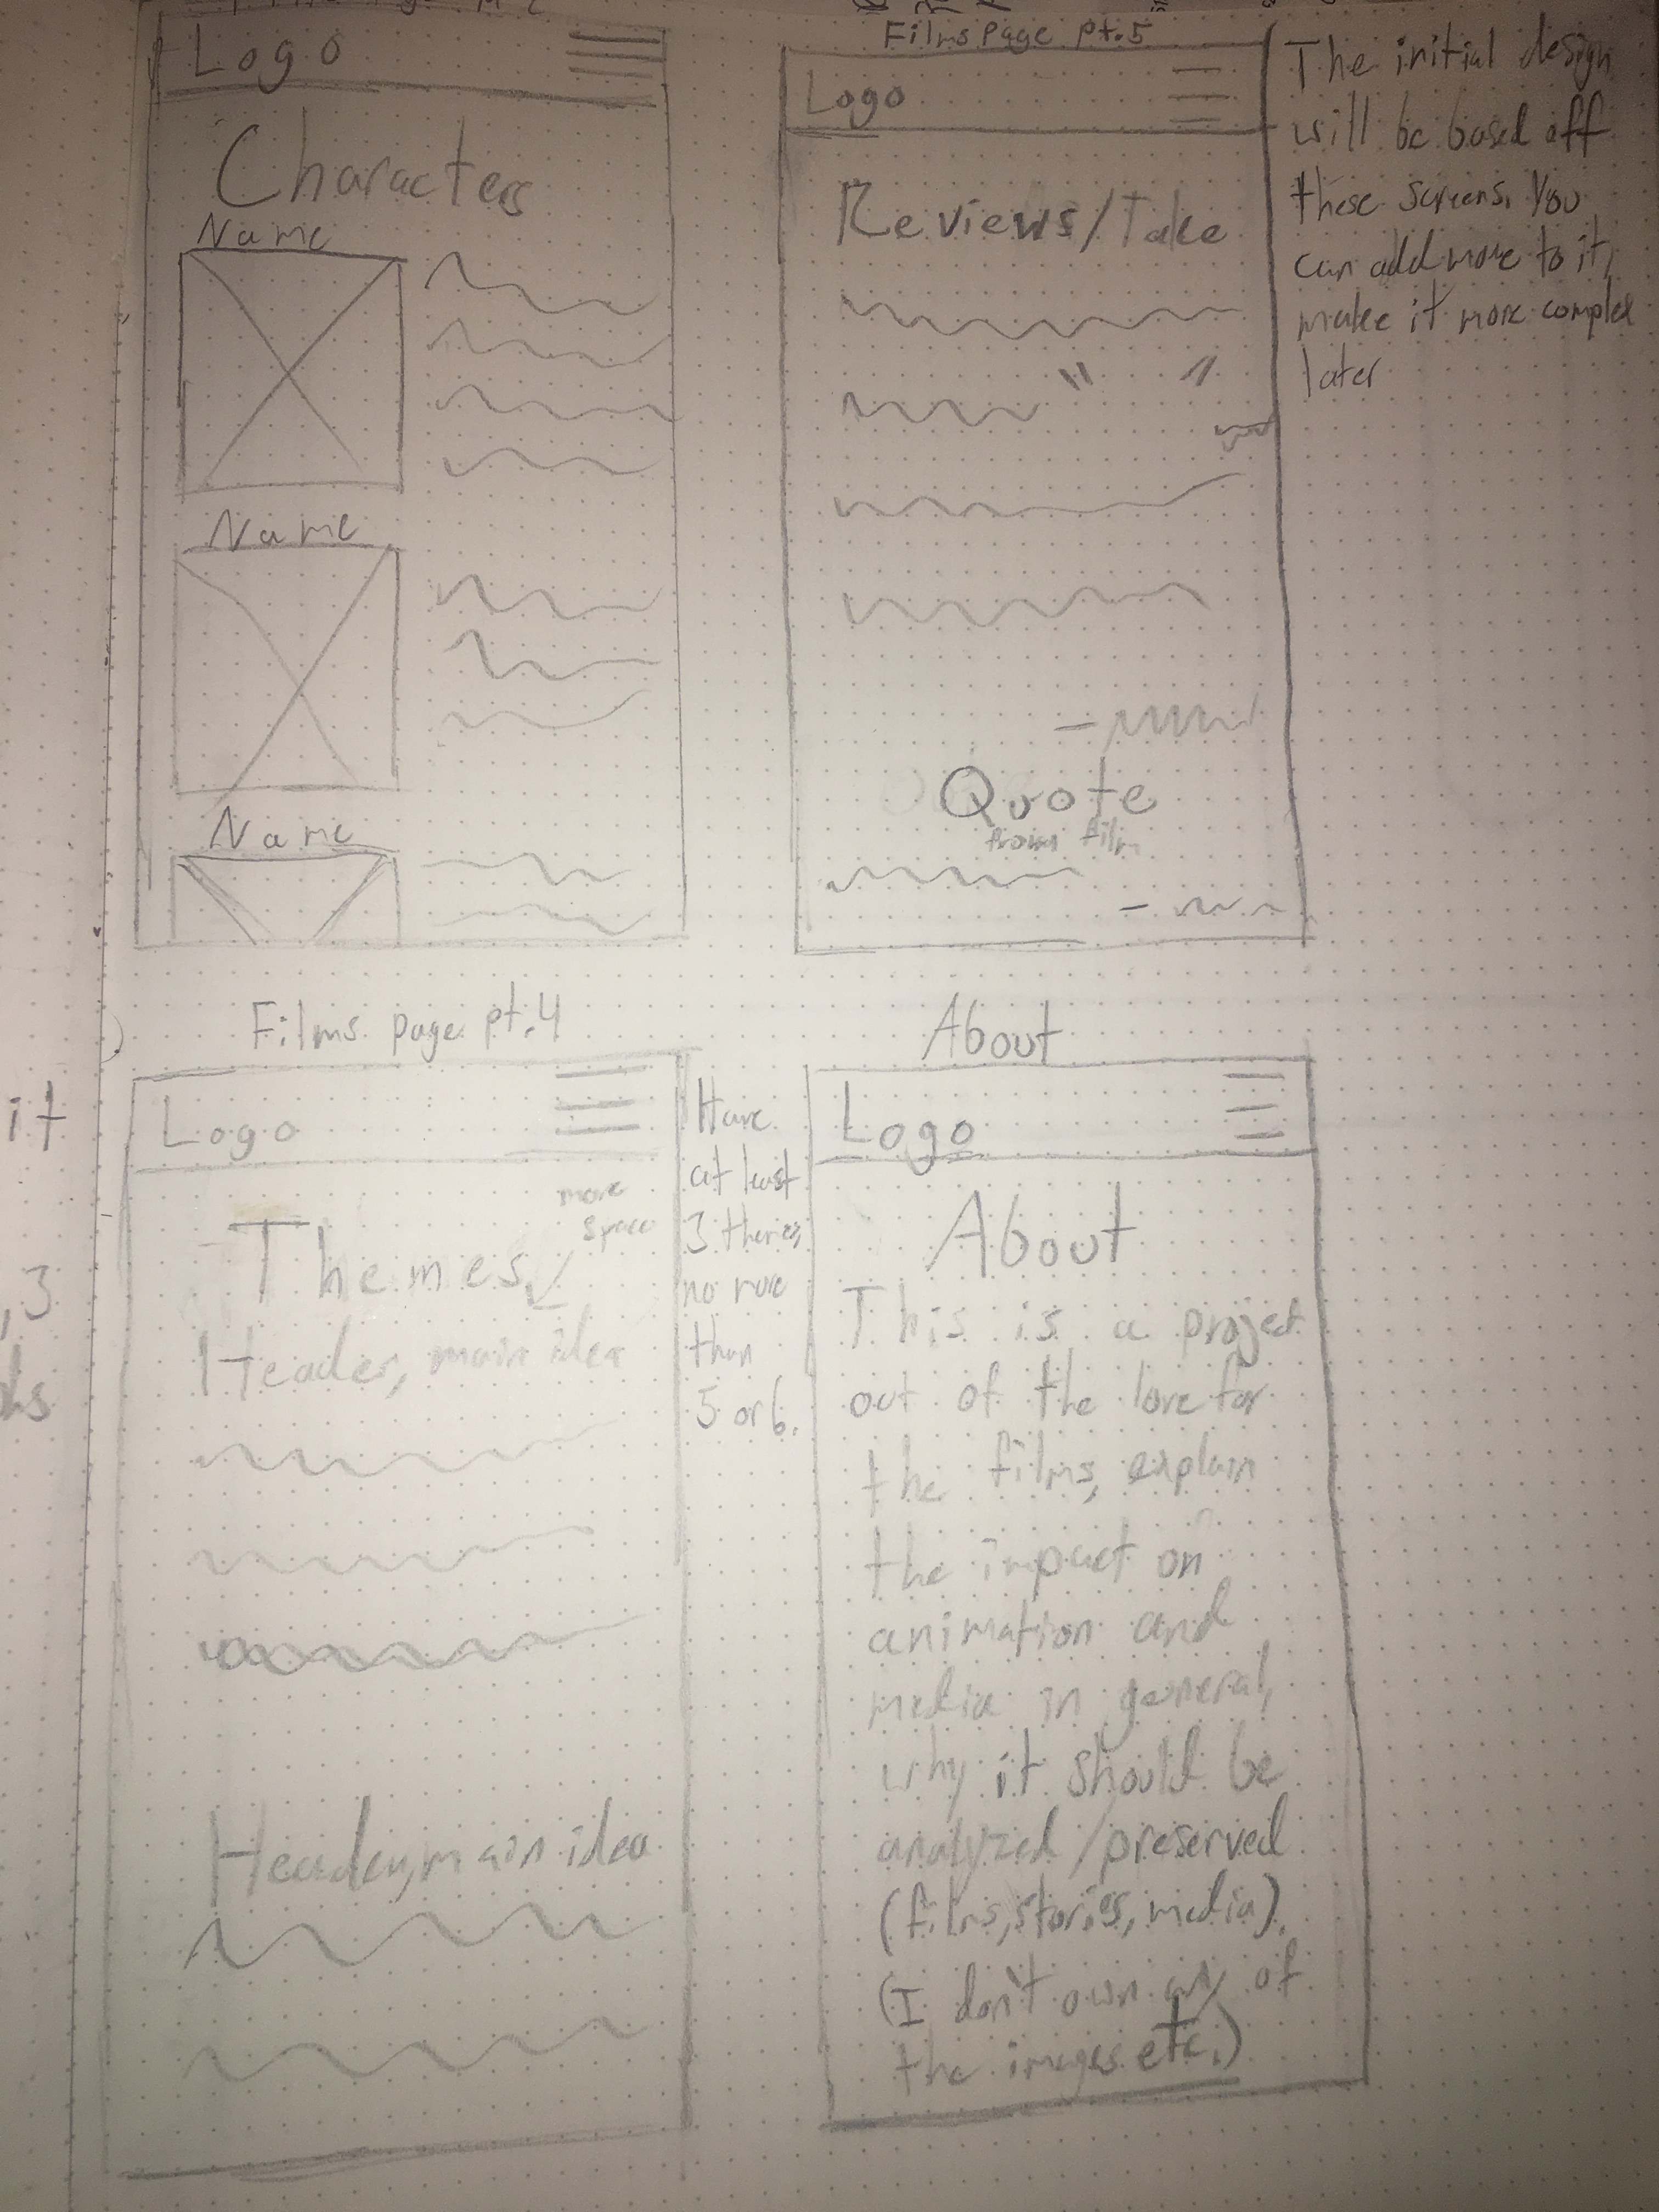 Logo
Characters
Name
Name
Name
Films Page pt.5
Logo
Reviews/Take
" "
Quote
from film
The initial design
will be based off
these screens. You
can add more to it,
make it more complex
later
Films page pt.4
Logo
more
space
Themes
Header, main idea
Header, main idea
Have
at least
3 themes,
no more
than
5 or 6.
About
Logo
About
This is a project
out of the love for
the films, explain
the impact on
animation and
media in general,
why it should be
analyzed/preserved
(films, stories, media).
(I don't own any of
the images etc.)
it
,3